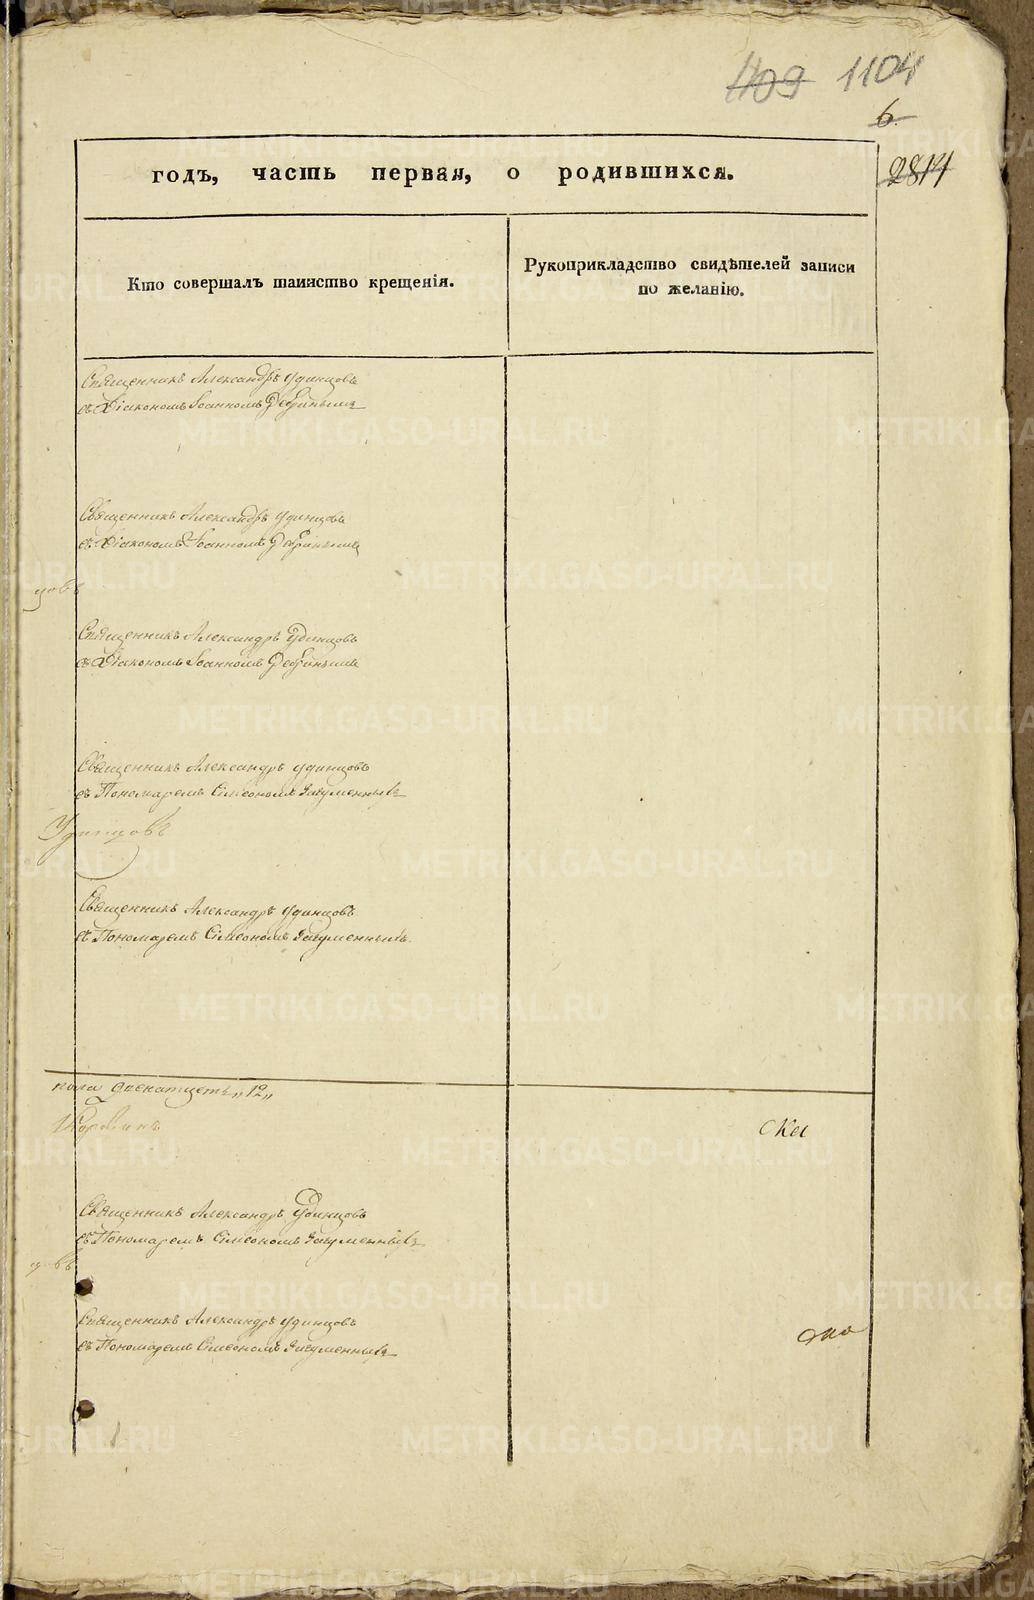 1109 1104
6.
2814
годъ, часть первая, о родившихся.
Кто совершалъ таинство крещенія.
Рукоприкладство свидѣтелей записи
по желанію.
Священникъ Александръ Удинцовъ
съ Діакономъ Іоанномъ
Священникъ Александръ Удинцовъ
съ Діакономъ Іоанномъ
цовъ
Священникъ Александръ Удинцовъ
съ Діакономъ Іоанномъ
Священникъ Александръ Удинцовъ
съ Пономаремъ Сімеономъ Игуменныхъ
Удинцовъ
Священникъ Александръ Удинцовъ
съ Пономаремъ Сімеономъ Игуменныхъ.
пола двенатцеть „12„
Священникъ Александръ Удинцовъ
съ Пономаремъ Сімеономъ Игуменныхъ
Священникъ Александръ Удинцовъ
съ Пономаремъ Сімеономъ Игуменныхъ
METRIKI.GASO-URAL.RU